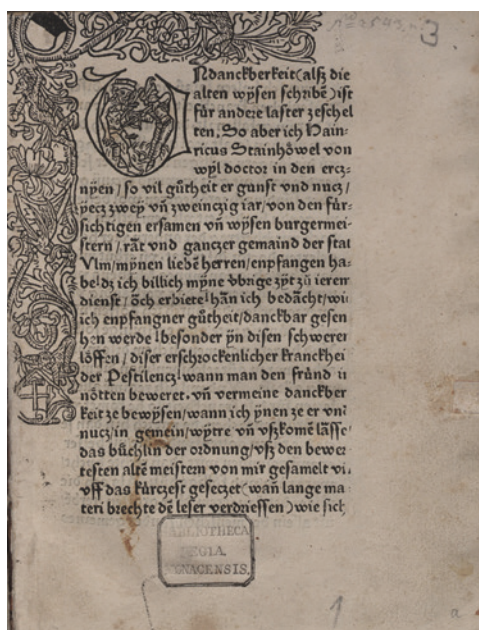 3
Ndanckberkeit (alsz die
alten wysen schribē) ist
für andere laster zeschel
ten. So aber ich Hain⸗
ricus Stainhöwel von
wyl doctor in den ercz⸗
nyen / so vil gůtheit er gunst vnd nucz /
yecz zwey vñ zweinczig iar / von den für⸗
sichtigen ersamen vñ wysen burgermei⸗
stern / rāt vnd ganczer gemaind der stat
Vlm / mynen liebē herren / enpfangen ha⸗
be / dz ich billich myne vbrige zyt zů ierem
dienst / öch erbiete / hān ich bedācht / wi
ich enpfangner gůtheit / danckbar gesen
hen werde / besonder yn disen schwerer
löffen / diser erschrockenlicher kranckhei
der Pestilencz / wann man den fründ i
nötten beweret. vñ vermeine danckber
keit ze bewysen / wann ich ynen ze er vn
nucz / in gemein / wytre vñ vszkomē lāsse
das büchlin der ordnung / vsz den bewer
testen altē meistern von mir gesamelt vi
vff das kürczest geseczet (wañ lange ma
teri brechte dē leser verdriessen) wie sich
BIBLIOTHECA
REGIA
MONACENSIS.
1
a